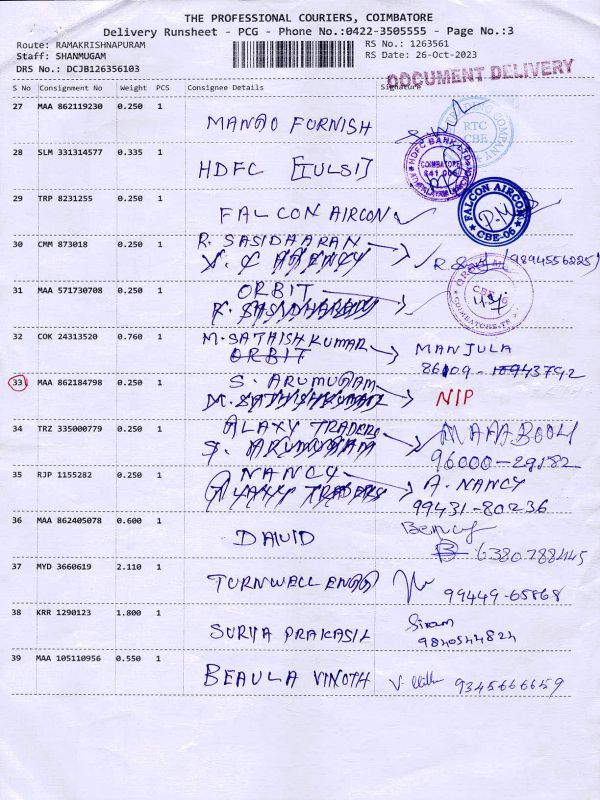 THE PROFESSIONAL COURIERS, COIMBATORE
Delivery Runsheet - PCG - Phone No.:0422-3505555 - Page No.:3
Route: RAMAKRISHNAPURAM
RS No.: 1263561
Staff: SHANMUGAM
RS Date: 26-Oct-2023
DRS No.: DCJB126356103
DOCUMENT DELIVERY
S No Consignment No Weight PCS Consignee Details Signature
27 MAA 862119230 0.250 1
MANGO FURNISH
TRADING COMPANY
RTC
CBE
28 SLM 331314577 0.335 1
HDFC [TULSI]
HDFC BANK LTD
COIMBATORE
641 006
29 TRP 8231255 0.250 1
FALCON AIRCON
FALCON AIRCON
CBE-06
30 CMM 873018 0.250 1
R. SASIDAARAN
31 MAA 571730708 0.250 1
ORBIT
CBE-6
COIMBATORE-TN
32 COK 24313520 0.760 1
M. SATHISH KUMAR
ORBIT
MANJULA
33 MAA 862184798 0.250 1
S. ARUMUGAM
NIP
34 TRZ 335000779 0.250 1
GALAXY TRADERS
96000-29182
35 RJP 1155282 0.250 1
NANCY
A. NANCY
99431-80236
36 MAA 862405078 0.600 1
DAVID
37 MYD 3660619 2.110 1
TURNWELL ENGG
99449-65868
38 KRR 1290123 1.800 1
SURYA PRAKASH
Siram
9840544824
39 MAA 105110956 0.550 1
BEAULA VINOTH
9345666659